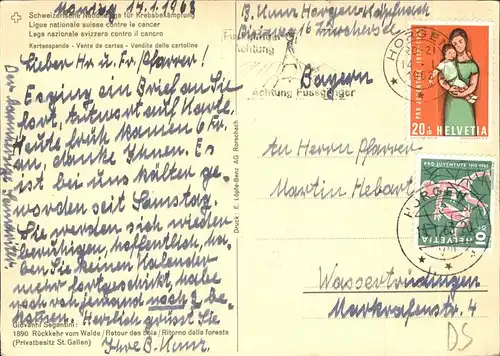 Montag 14.1.1963
Schweizerische Nationalliga für Krebsbekämpfung
Ligue nationale suisse contre le cancer
Lega nazionale svizzera contro il cancro
Kartenspende - Vente de cartes - Vendita delle cartoline
Lieber Hr u. Fr. Pfarrer!
Es ging ein Brief an Sie
fort, Antwort auf Karte.
Heute früh kamen 6 Fr.
an, danke Ihnen. Es
ist bei uns kälter ge-
worden seit Samstag.
Sie werden sich wieder
beruhigen, hoffentlich, ha-
ben Sie keinen Kalender
mehr fortgeschickt, habe
noch von jemand noch 2 be-
kommen. Herzlich grüsst Sie
Ihre B. Kunz
Giovanni Segantini:
1890 Rückkehr vom Walde / Retour des bois / Ritorno dalla foresta
(Privatbesitz St. Gallen)
Druck: E. Löpfe-Benz AG Rorschach
B. Kunz Horgen
Achtung Fussgänger
Bayern
An Herrn Pfarrer
Martin Hebart
Wassertrüdingen
Markgrafenstr. 4
DS
HORGEN
PRO JUVENTUTE 1912-1962
20+10 HELVETIA
HORGEN
10
HELVETIA